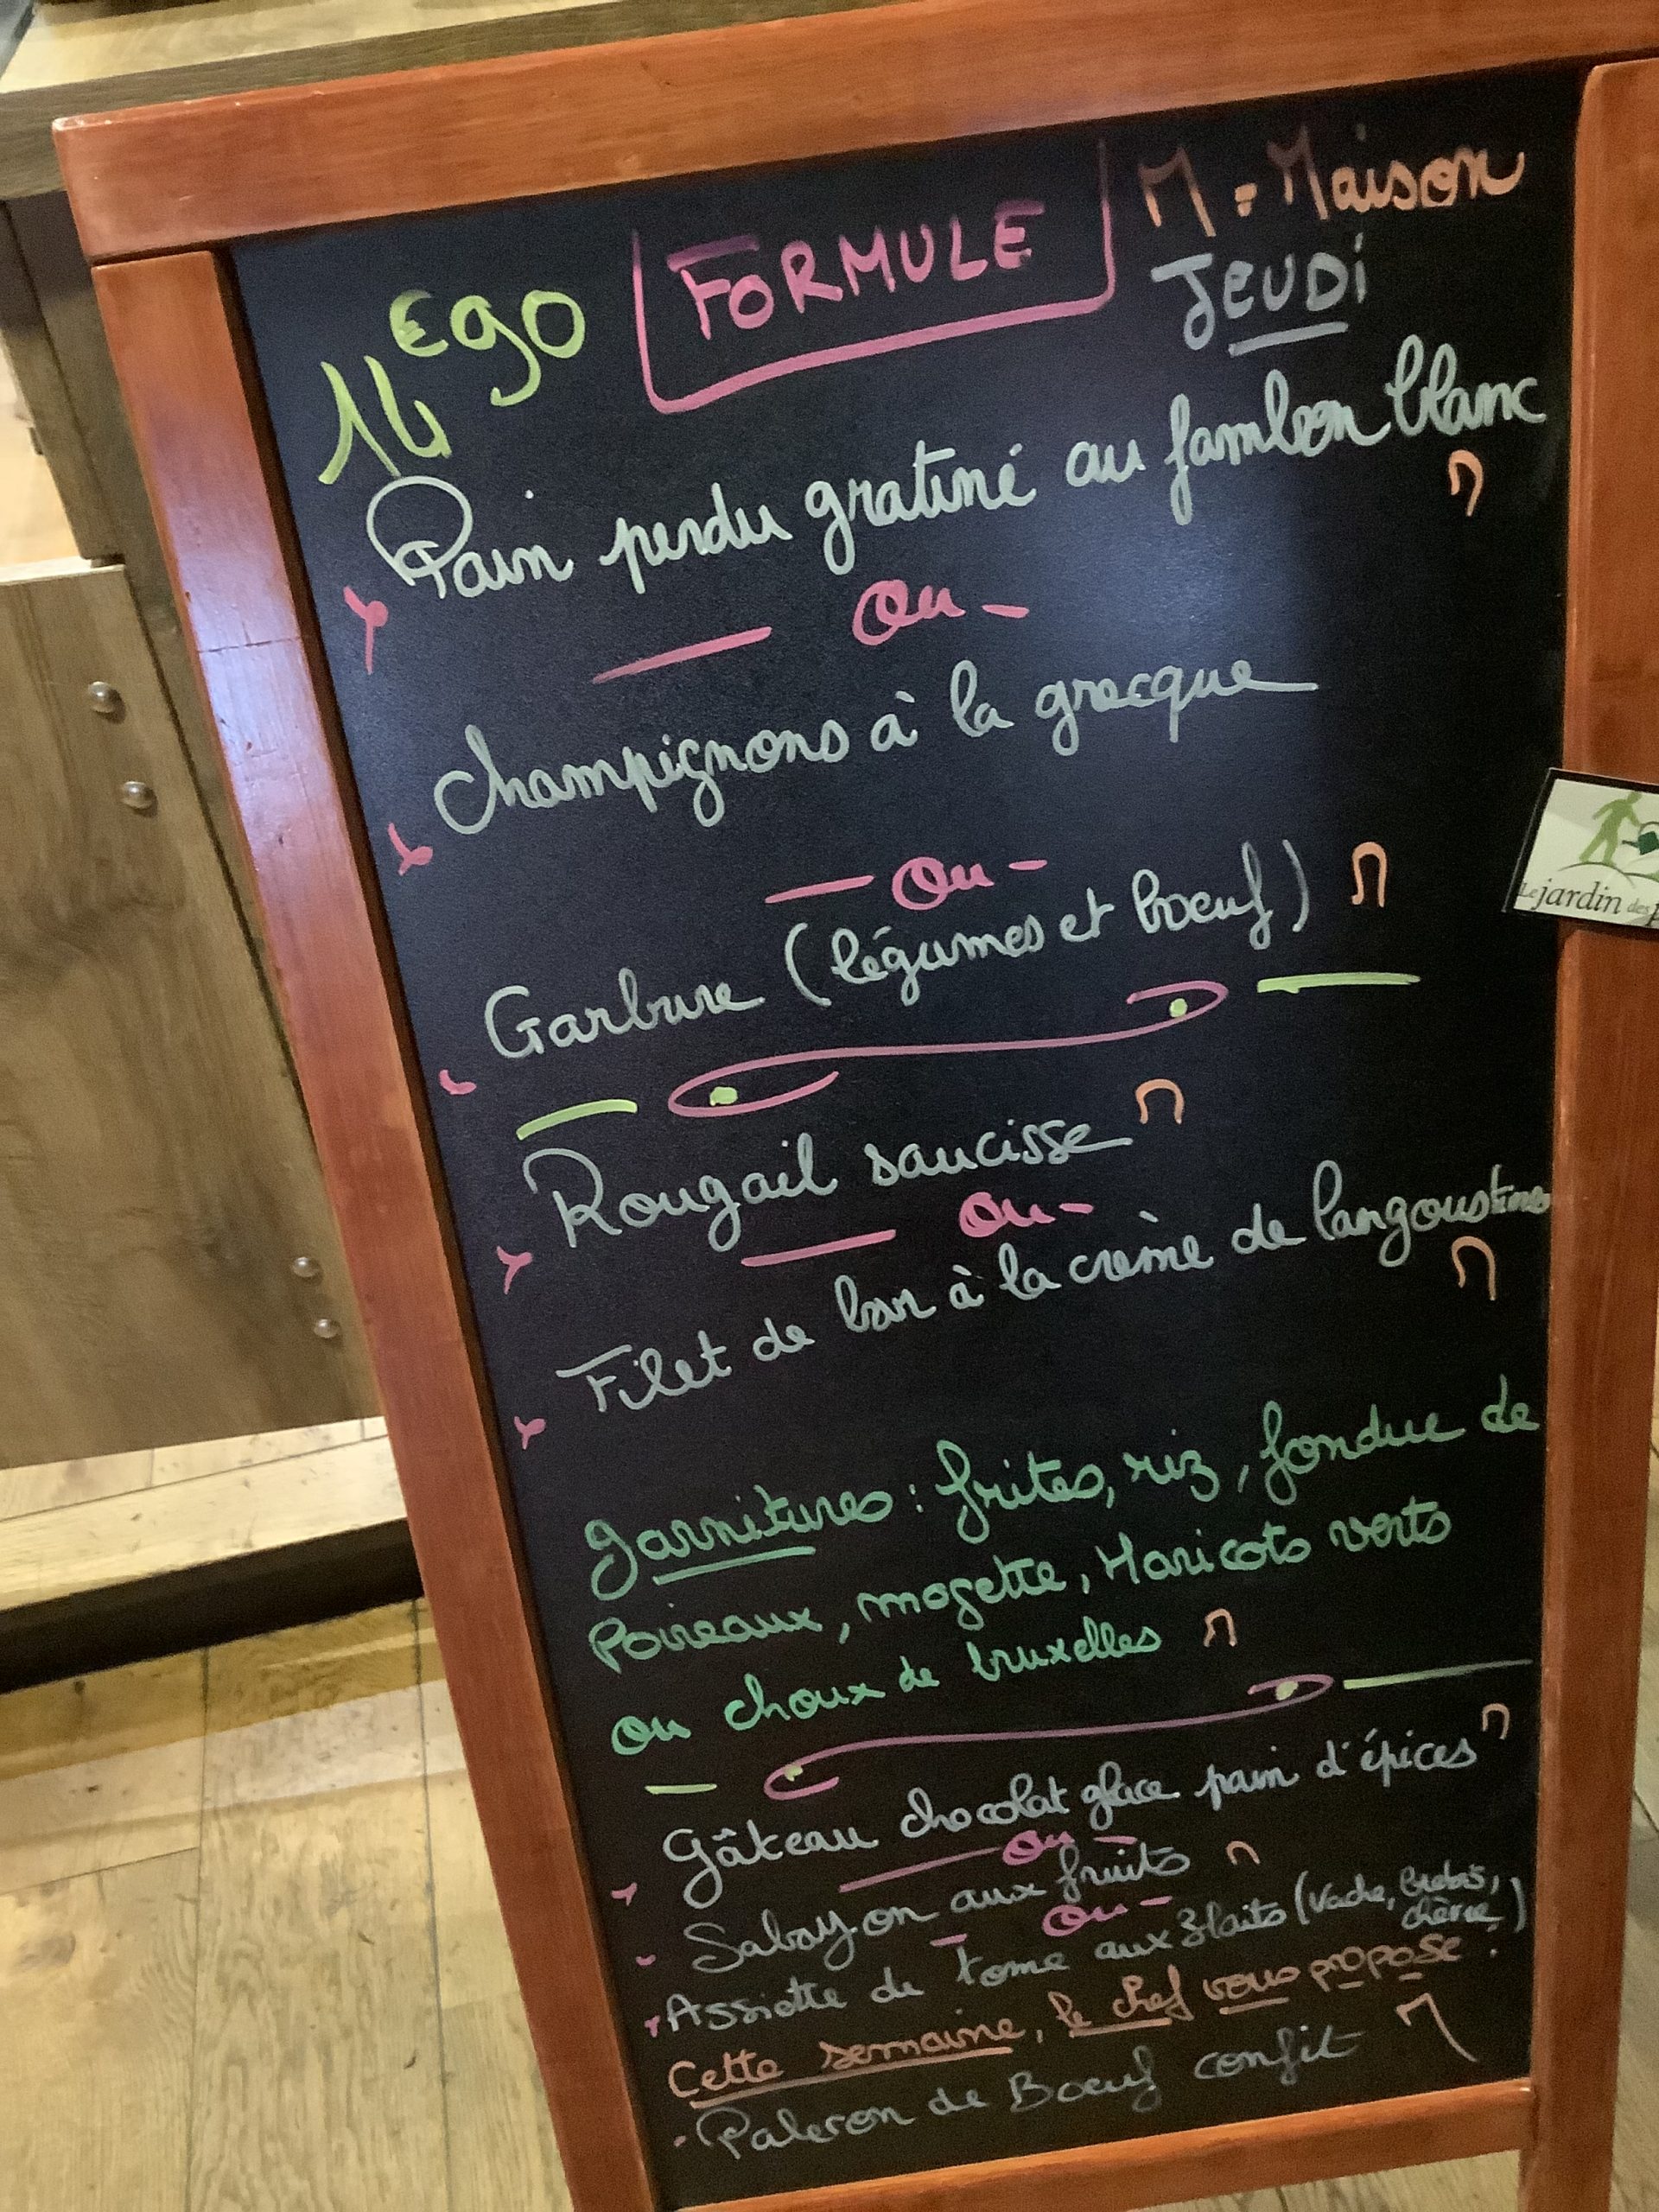 14€90 FORMULE M = Maison
JEUDi
Pain perdu gratiné au jambon blanc
M
- Ou -
Champignons à la grecque
- Ou -
Garbure (légumes et boeuf) M
Rougail saucisse M
- Ou -
Filet de bar à la crème de langoustines
M
Garnitures : frites, riz, fondue de
Poireaux, mogette, Haricots verts
ou choux de bruxelles M
Gâteau chocolat glace pain d'épices M
- Ou -
Sabayon aux fruits M
- Ou -
Assiette de tome aux 3 laits (vache, brebis,
chèvre)
Cette semaine, le chef vous propose :
Paleron de Boeuf confit M
Le jardin des